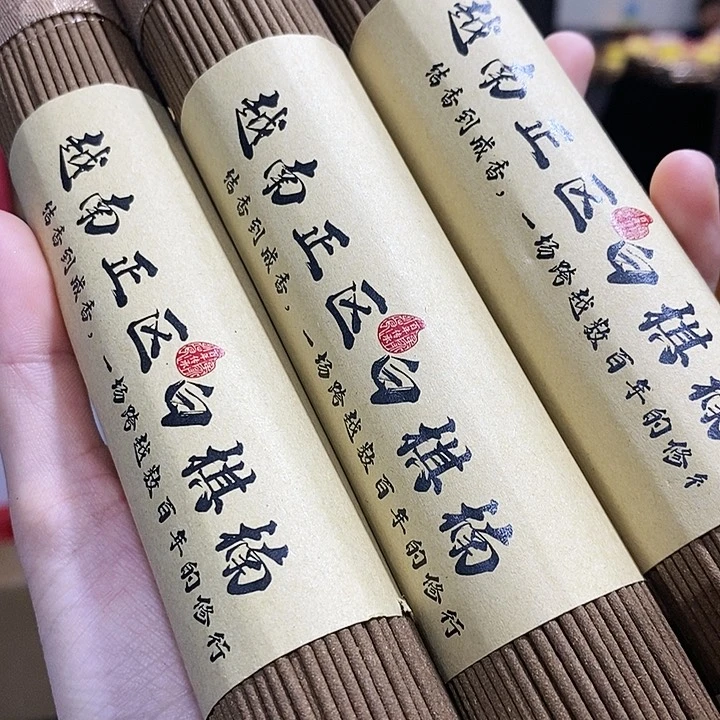 越南正区白棋楠
结香到成香，一场跨越数百年的修行
越南正区白棋楠
结香到成香，一场跨越数百年的修行
越南正区白棋楠
结香到成香，一场跨越数百年的修行